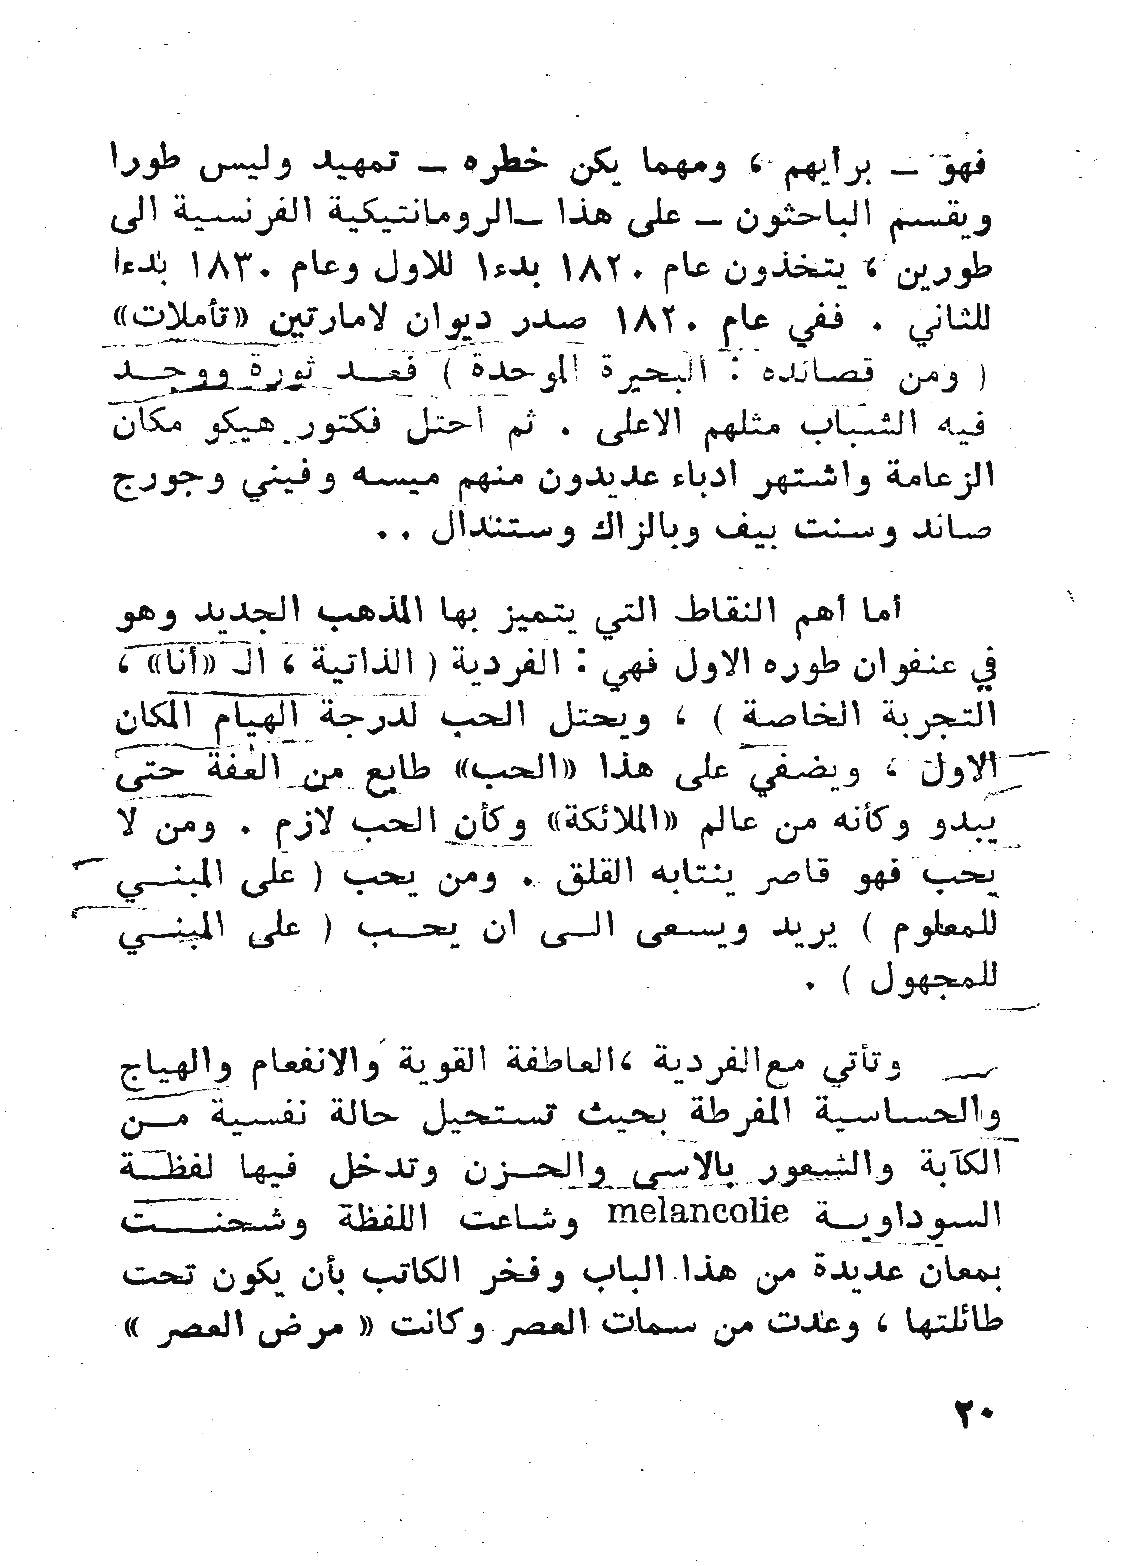 فهو – برأيهم ، ومهما يكن خطره – تمهيد وليس طورا
ويقسم الباحثون – على هذا –الرومانتيكية الفرنسية الى
طورين ، يتخذون عام ١٨٢٠ بدءا للاول وعام ١٨٣٠ بدءا
للثاني . ففي عام ١٨٢٠ صدر ديوان لامارتين «تأملات»
( ومن قصائده : البحيرة الموحدة ) فعد ثورة ووجد
فيه الشباب مثلهم الاعلى . ثم احتل فكتور هيكو مكان
الزعامة واشتهر ادباء عديدون منهم ميسه وفيني وجورج
صاند وسنت بيف وبالزاك وستندال . .
أما أهم النقاط التي يتميز بها المذهب الجديد وهو
في عنفوان طوره الاول فهي : الفردية ( الذاتية ، الـ «أنا» ،
التجربة الخاصة ) ، ويحتل الحب لدرجة الهيام المكان
الاول ، ويضفي على هذا «الحب» طابع من العفة حتى
يبدو وكأنه من عالم «الملائكة» وكأن الحب لازم . ومن لا
يحب فهو قاصر ينتابه القلق . ومن يحب ( على المبني
للمعلوم ) يريد ويسعى الى ان يحب ( على المبني
للمجهول ) .
وتأتي مع الفردية ،العاطفة القوية والانفعام والهياج
والحساسية المفرطة بحيث تستحيل حالة نفسية من
الكآبة والشعور بالاسى والحزن وتدخل فيها لفظة
السوداوية melancolie وشاعت اللفظة وشحنت
بمعان عديدة من هذا الباب وفخر الكاتب بأن يكون تحت
طائلتها ، وعدت من سمات العصر وكانت « مرض العصر »
٢٠